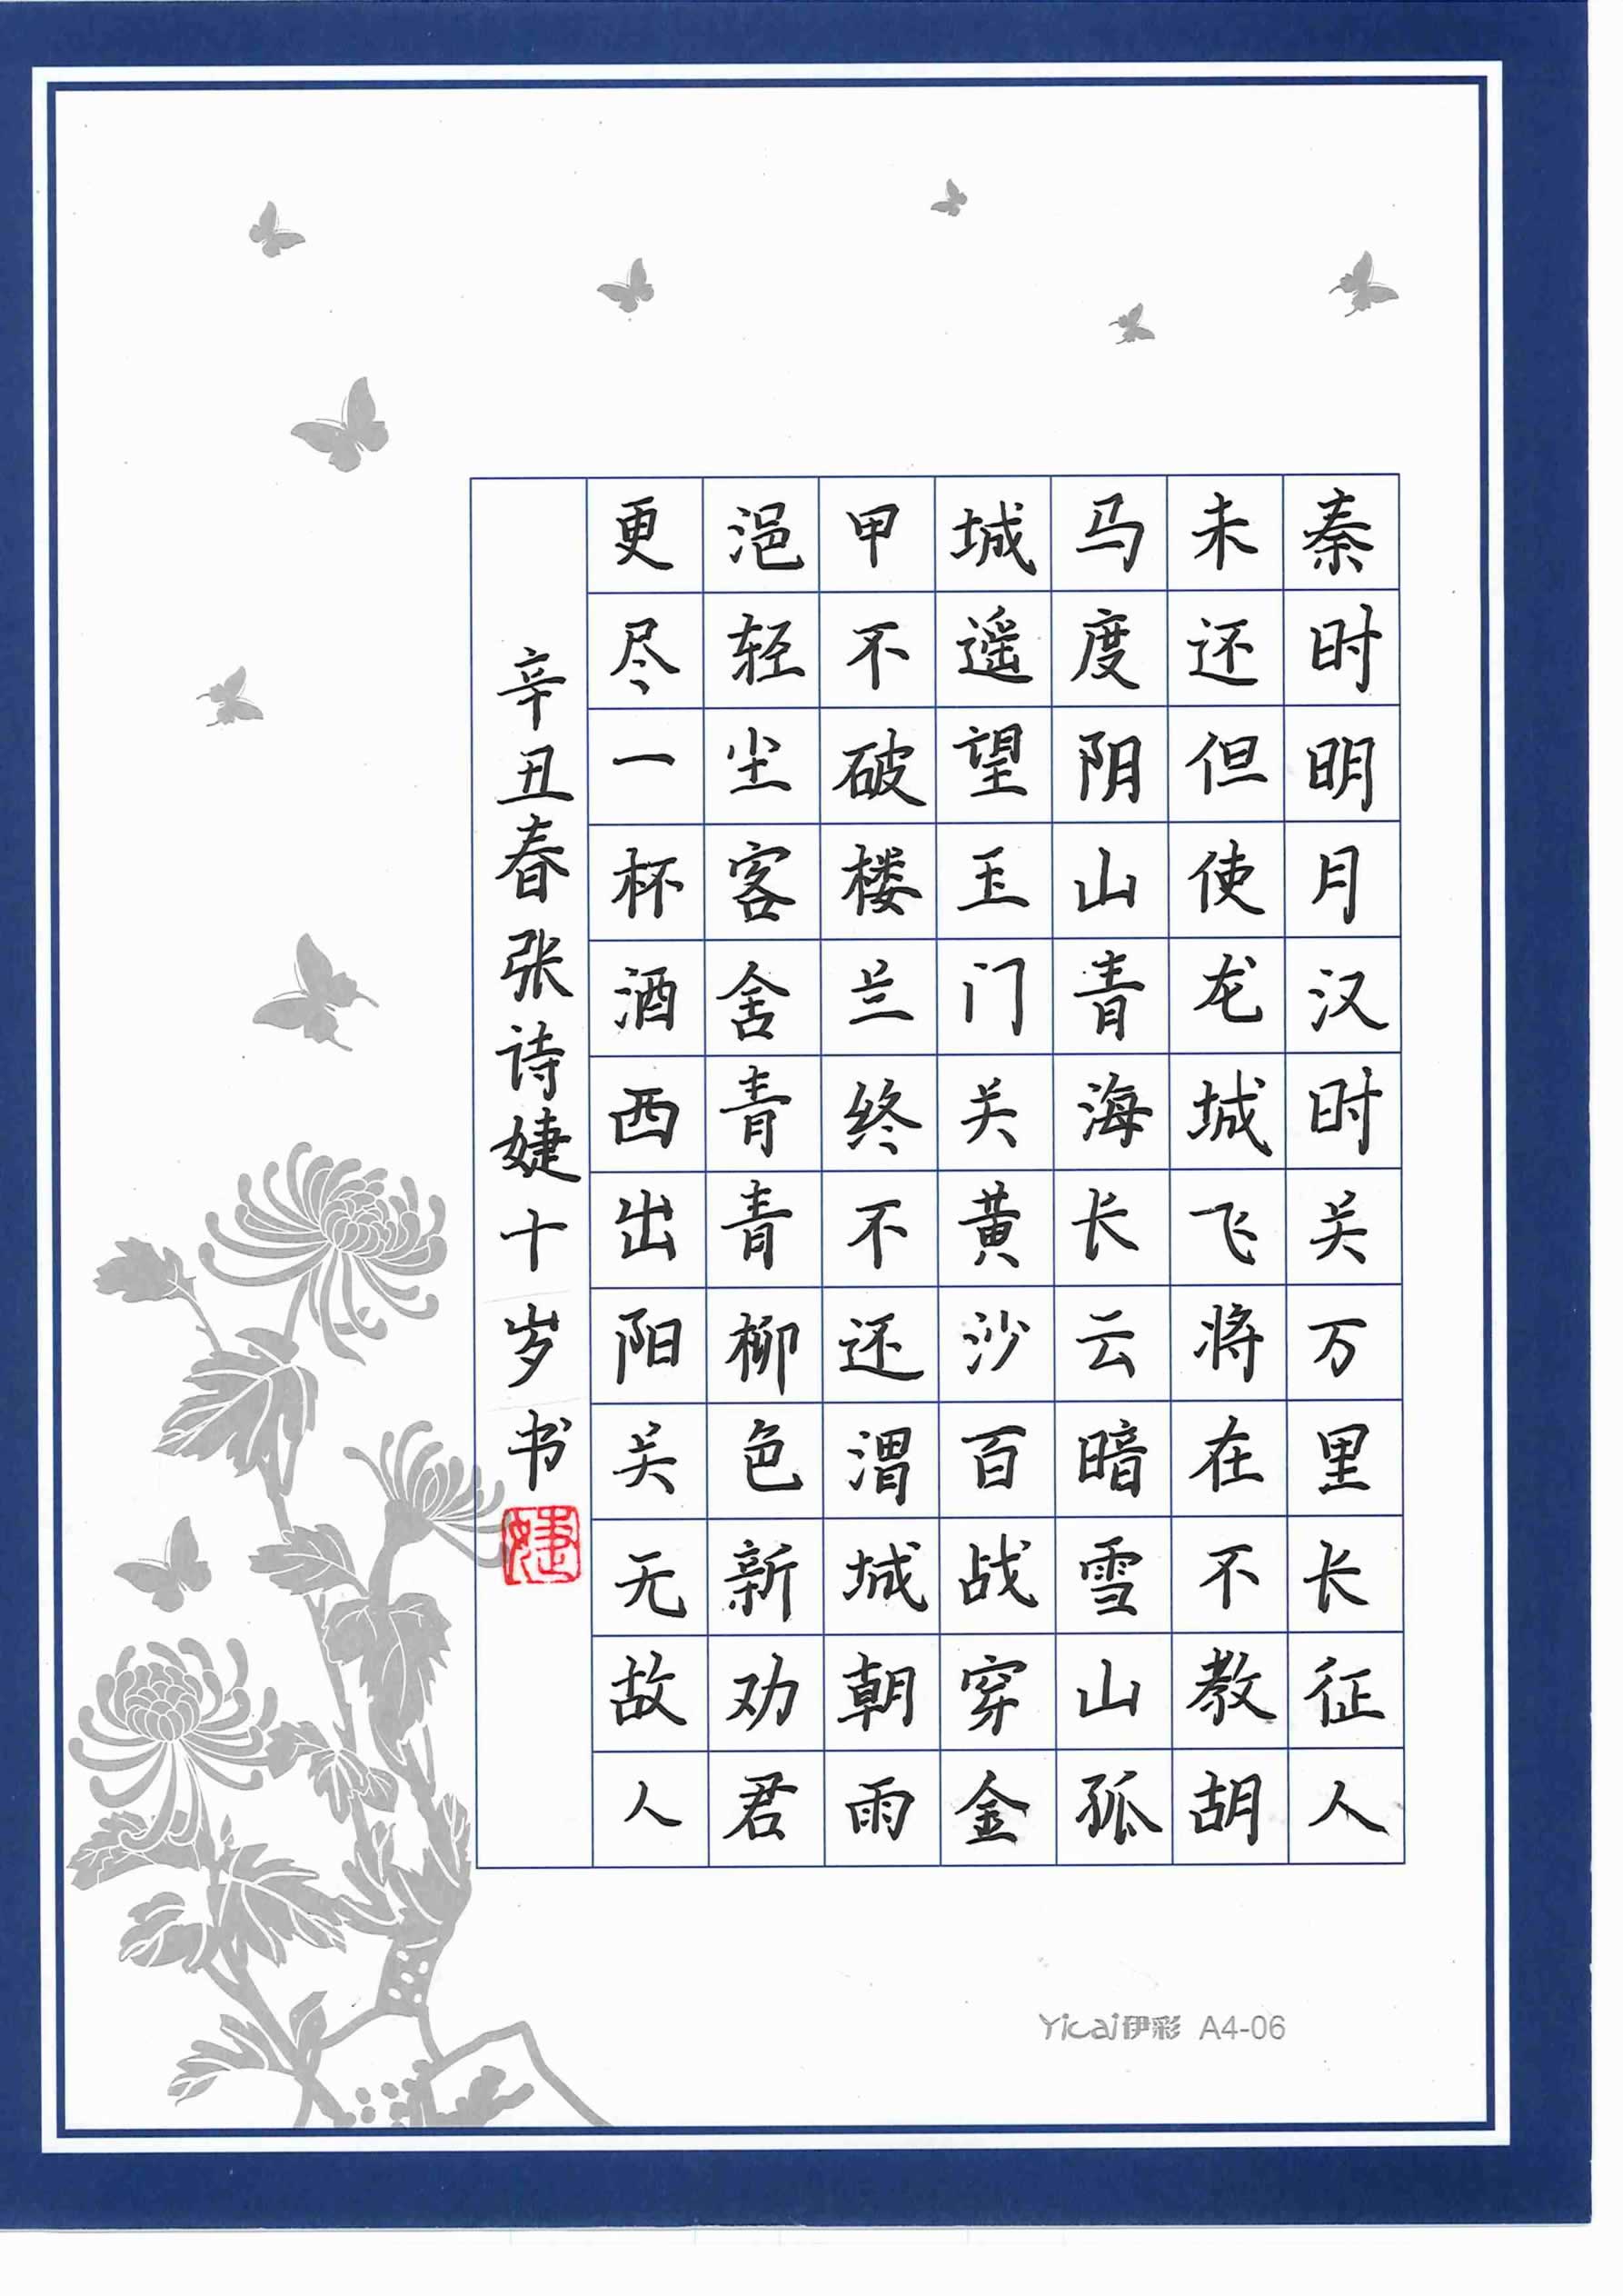 秦时明月汉时关万里长征人
未还但使龙城飞将在不教胡
马度阴山青海长云暗雪山孤
城遥望玉门关黄沙百战穿金
甲不破楼兰终不还渭城朝雨
浥轻尘客舍青青柳色新劝君
更尽一杯酒西出阳关无故人
辛丑春张诗婕十岁书
婕
Yicai伊彩 A4-06